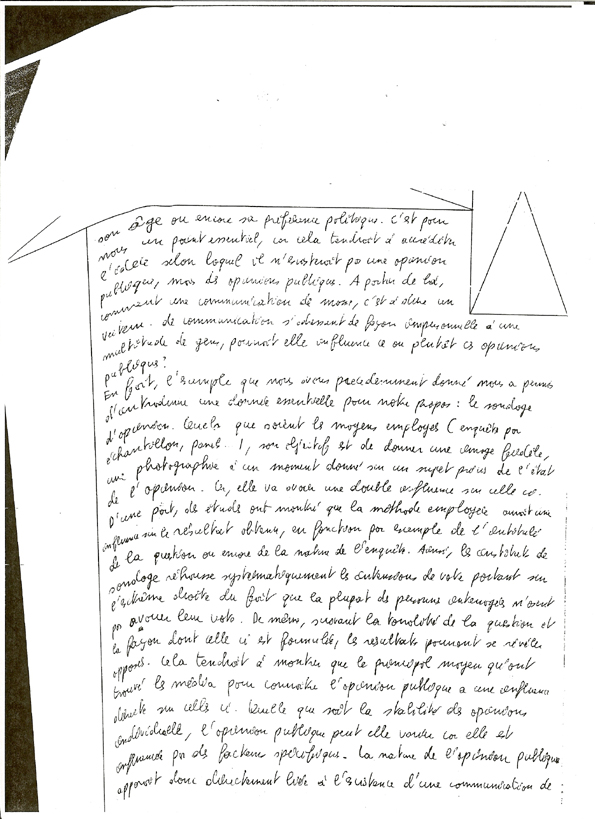 son âge ou encore sa préférence politique. C'est pour
nous un point essentiel, car cela tendrait à accréditer
l'idée selon laquel il n'existerait pas une opinion
publique, mais des opinions publiques. A partir de là,
comment une communication de masse, c'est à dire un
de communication s'adressant de façon impersonnelle à une
multitude de gens, pourrait elle influence ce ou plutôt ces opinions
publiques?
En fait, l'exemple que nous avons précédemment donné nous a permis
d'introduire une donnée essentielle pour notre propos : le sondage
d'opinion. Quels que soient les moyens employés (enquête par
échantillon, panel. ), son objectif est de donner une image fidèle,
une photographie à un moment donné sur un sujet précis de l'état
de l'opinion. Or, elle va avoir une double influence sur celle ci.
D'une part, des études ont montré que la méthode employée avait une
influence sur le résultat obtenu, en fonction par exemple de l'
de la question ou encore de la nature de l'enquête. Ainsi, les instituts de
sondage réhausse systématiquement les intensions de vote portant sur
l'extrême droite du fait que la plupart des personnes interrogées n'osent
pas avouer leur vote. De même, suivant la tonalité de la question et
la façon dont celle ci est formulée, les résultats pourront se révéler
opposés. Cela tendrait à montrer que le principal moyen qu'ont
trouvé les média pour connaître l'opinion publique a une influence
directe sur celle ci. Quelle que soit la stabilité des opinions
individuelle, l'opinion publique peut elle varier car elle est
influencée par des facteurs spécifiques. La nature de l'opinion publique
apparaît donc directement liée à l'existence d'une communication de